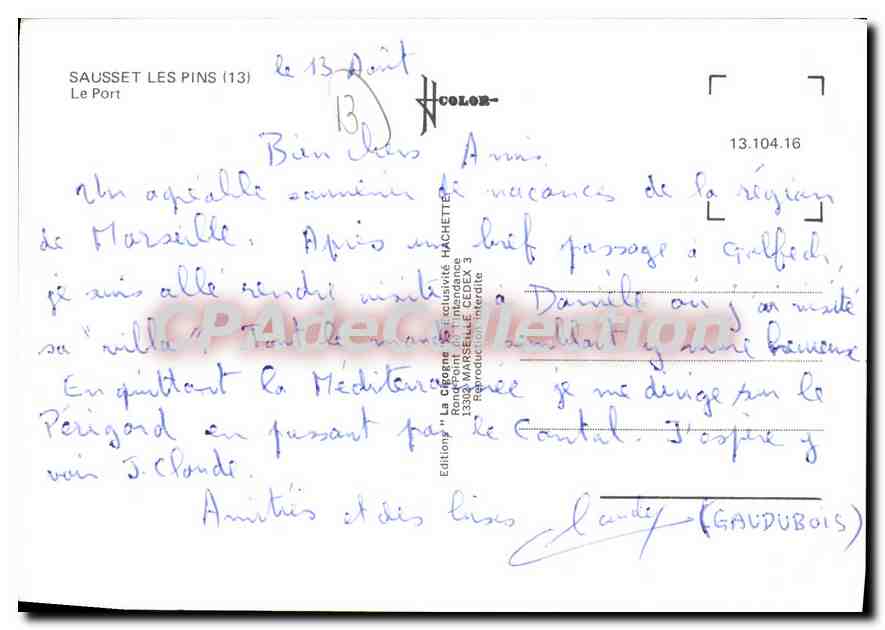 SAUSSET LES PINS (13)
Le Port
le 13 Août
13
COLOR
13.104.16
Bien chers Amis.
Un agréable souvenir de vacances de la région
de Marseille. Après un bref passage à Golfech,
je suis allé rendre visite à Danièle où j'ai visité
sa "villa". Tout le monde semblait y vivre heureux.
En quittant la Méditerranée je me dirige sur le
Périgord en passant par le Cantal. J'espère y
voir J. Claude.
Amitiés et des bises Claude (GAUDUBOIS)
Editions "La Cigogne" Exclusivité HACHETTE
Rond-Point de l'Intendance
13302 MARSEILLE CEDEX 3
Reproduction interdite
CPAdeCollection